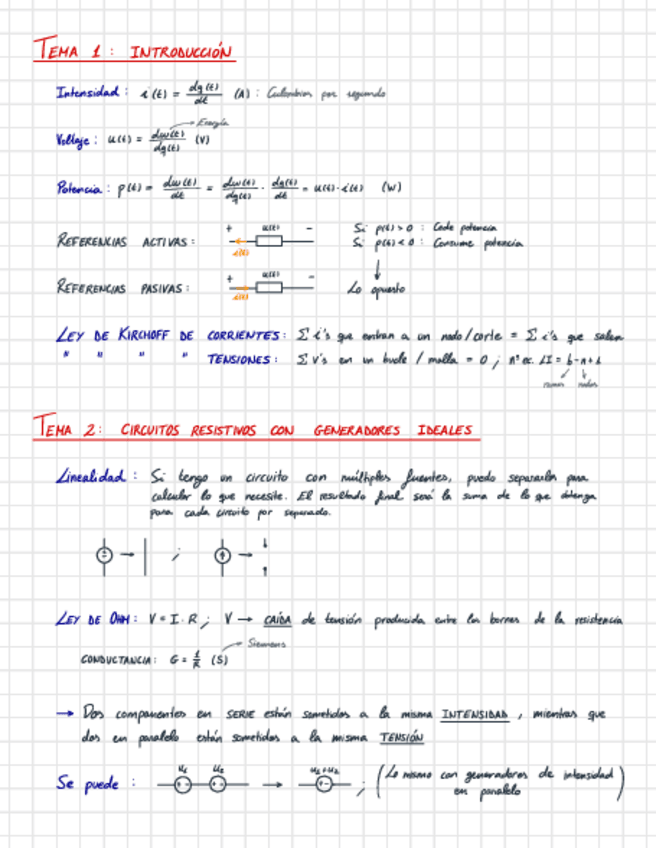 TEMA 1: INTRODUCCIÓN
Intensidad: i(t) = dq(t)/dt (A): Culombios por segundo
Voltaje: u(t) = dw(t)/dq(t) (V) → Energía
Potencia: p(t) = dw(t)/dt = dw(t)/dq(t) · dq(t)/dt = u(t)·i(t) (W)
REFERENCIAS ACTIVAS: + u(t) - i(t) Si p(t) > 0: Cede potencia
Si p(t) < 0: Consume potencia
REFERENCIAS PASIVAS: + u(t) - i(t) Lo opuesto
LEY DE KIRCHOFF DE CORRIENTES: Σ i's que entran a un nodo/corte = Σ i's que salen
" " " " TENSIONES: Σ V's en un bucle / malla = 0; nº ec. LI = b-n+1
ramas nodos
TEMA 2: CIRCUITOS RESISTIVOS CON GENERADORES IDEALES
Linealidad: Si tengo un circuito con múltiples fuentes, puedo separarlas para
calcular lo que necesite. El resultado final será la suma de lo que obtenga
para cada circuito por separado.
→ ; →
LEY DE OHM: V = I·R; V → CAÍDA de tensión producida entre los bornes de la resistencia
→ Siemens
CONDUCTANCIA: G = 1/R (S)
→ Dos componentes en SERIE están sometidos a la misma INTENSIDAD, mientras que
dos en paralelo están sometidos a la misma TENSIÓN
Se puede: u1 u2 → u1+u2 ; (Lo mismo con generadores de intensidad
en paralelo)